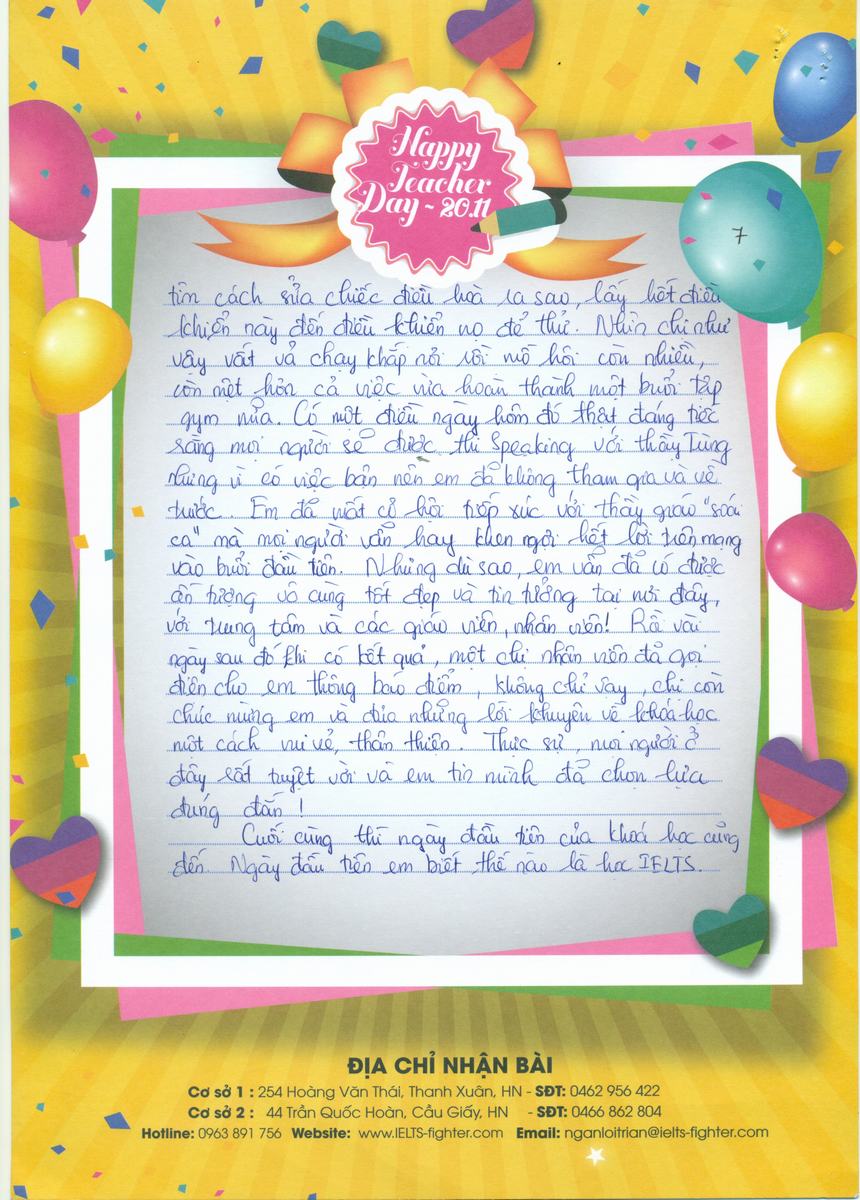 Happy
Teacher
Day ~ 20.11
7
tìm cách sửa chiếc điều hoà ra sao, lấy hết điều
khiển này đến điều khiển nọ để thử. Nhìn chị như
vậy vất vả chạy khắp nơi rồi mồ hôi còn nhiều,
còn mệt hơn cả việc vừa hoàn thành một buổi tập
gym nữa. Có một điều ngày hôm đó thật đáng tiếc
rằng mọi người sẽ được thi Speaking với thầy Tùng
nhưng vì có việc bận nên em đã không tham gia và về
trước. Em đã mất cơ hội tiếp xúc với thầy giáo "soái
ca" mà mọi người vẫn hay khen ngợi hết lời trên mạng
vào buổi đầu tiên. Nhưng dù sao, em vẫn đã có được
ấn tượng vô cùng tốt đẹp và tin tưởng tại nơi đây,
với trung tâm và các giáo viên, nhân viên! Rồi vài
ngày sau đó khi có kết quả, một chị nhân viên đã gọi
điện cho em thông báo điểm, không chỉ vậy, chị còn
chúc mừng em và đưa những lời khuyên về khoá học
một cách vui vẻ, thân thiện. Thực sự, mọi người ở
đây rất tuyệt vời và em tin mình đã chọn lựa
đúng đắn!
Cuối cùng thì ngày đầu tiên của khoá học cũng
đến. Ngày đầu tiên em biết thế nào là học IELTS.
ĐỊA CHỈ NHẬN BÀI
Cơ sở 1 : 254 Hoàng Văn Thái, Thanh Xuân, HN - SĐT: 0462 956 422
Cơ sở 2 : 44 Trần Quốc Hoàn, Cầu Giấy, HN - SĐT: 0466 862 804
Hotline: 0963 891 756 Website: www.IELTS-fighter.com Email: nganloitrian@ielts-fighter.com